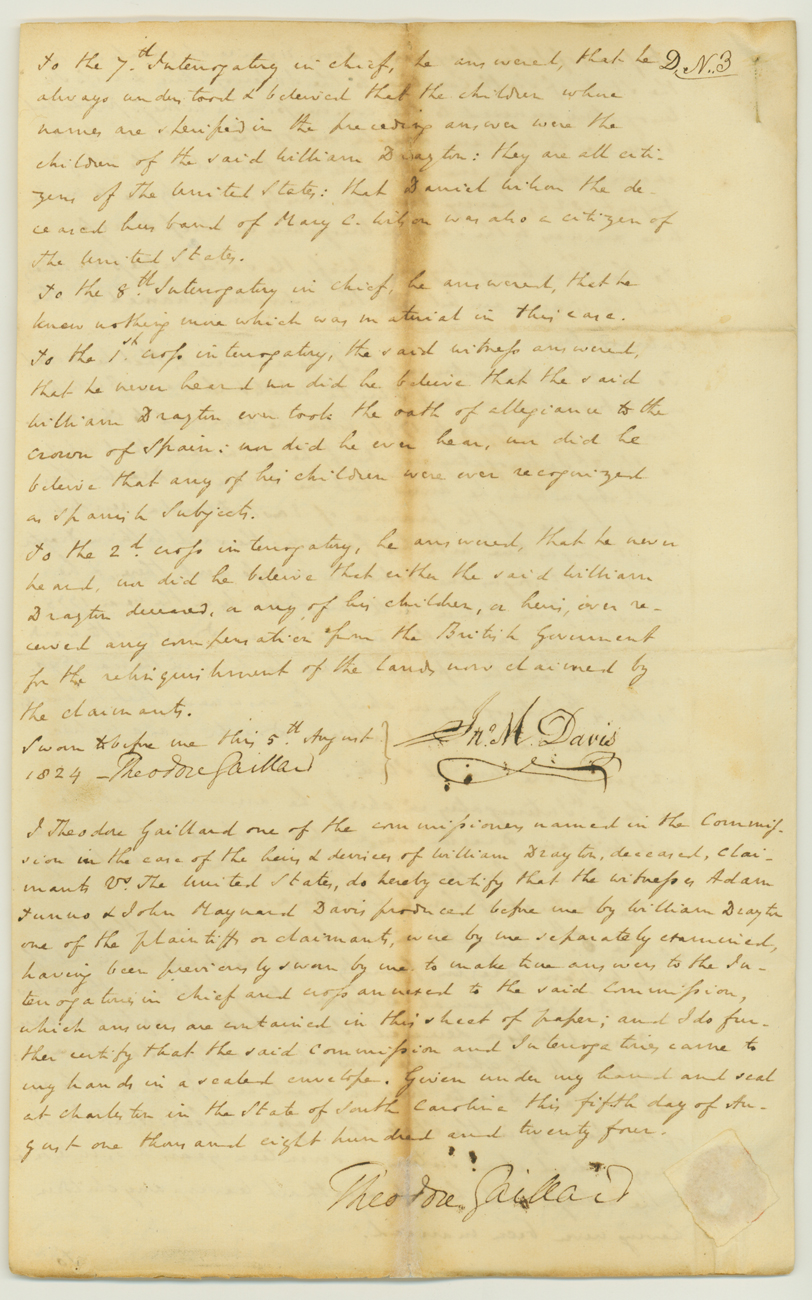 To the 7.th Interrogatory in chief, he answered, that he D. N. 3
always understood & beleived that the children whose
names are specified in the preceding answer were the
children of the said William Drayton: they are all citi-
zens of the United States: that Daniel Wilson the de-
ceased husband of Mary C. Wilson was also a citizen of
the United States.
To the 8.th Interrogatory in chief, he answered, that he
knew nothing more which was material in this case.
To the 1.st cross interrogatory, the said witness answered,
that he never heard nor did he beleive that the said
William Drayton ever took the oath of allegiance to the
crown of Spain: nor did he ever hear, nor did he
beleive that any of his children were ever recognized
as Spanish Subjects.
To the 2.d cross interrogatory, he answered, that he never
heard, nor did he beleive that either the said William
Drayton deceased, or any of his children, or heirs, ever re-
ceived any compensation from the British Goverment
for the relinquishment of the lands now claimed by
the claimants.
Sworn to before me this 5.th August
1824 – Theodore Gaillard
Jno. M. Davis
I Theodore Gaillard one of the commissioners named in the Commis-
sion in the case of the heirs & devisees of William Drayton, deceased, Clai-
mants Vs. The United States, do hereby certify that the witnesses Adam
Tunno & John Maynard Davis produced before me by William Drayton
one of the plaintiffs or claimants, were by me separately examined,
having been previously sworn by me to make true answers to the In-
terrogatories in chief and cross annexed to the said Commission,
which answers are contained in this sheet of paper; and I do fur-
ther certify that the said Commission and Interrogatories came to
my hands in a sealed envelope. Given under my hand and seal
at Charleston in the State of South Carolina this fifth day of Au-
gust one thousand eight hundred and twenty four.
Theodore Gaillard